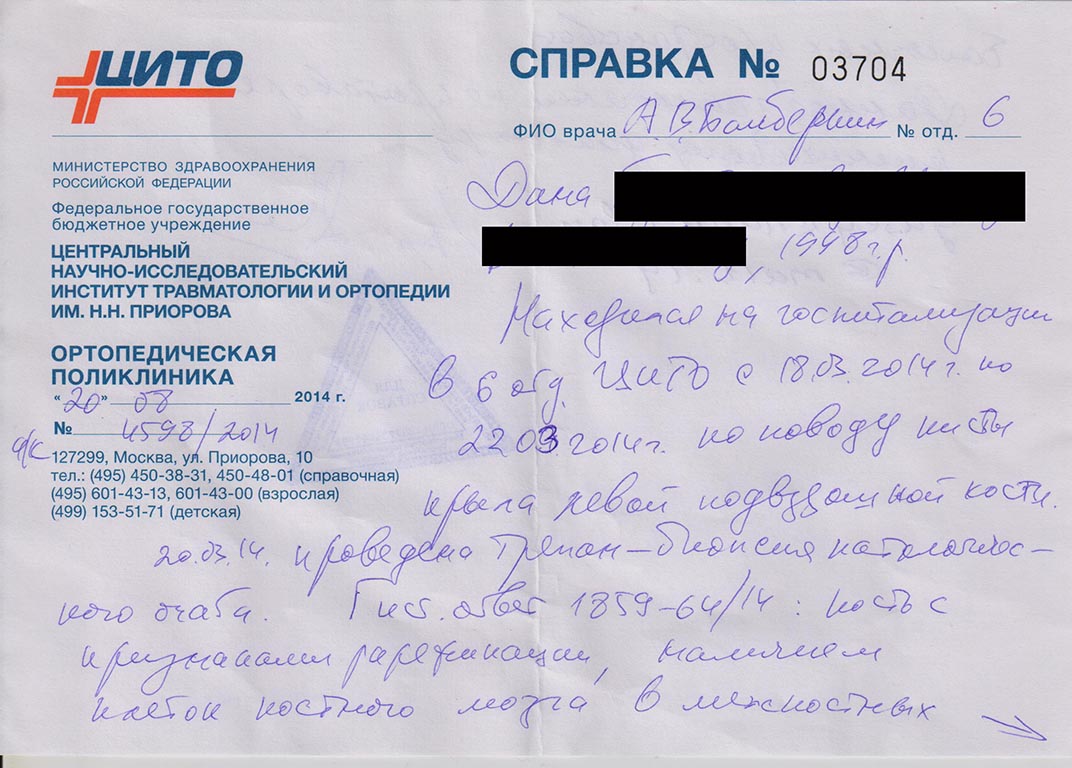 ЦИТО
МИНИСТЕРСТВО ЗДРАВООХРАНЕНИЯ
РОССИЙСКОЙ ФЕДЕРАЦИИ
Федеральное государственное
бюджетное учреждение
ЦЕНТРАЛЬНЫЙ
НАУЧНО-ИССЛЕДОВАТЕЛЬСКИЙ
ИНСТИТУТ ТРАВМАТОЛОГИИ И ОРТОПЕДИИ
ИМ. Н.Н. ПРИОРОВА
ОРТОПЕДИЧЕСКАЯ
ПОЛИКЛИНИКА
"20" 08 2014 г.
№ 4598/2014
а/к
127299, Москва, ул. Приорова, 10
тел.: (495) 450-38-31, 450-48-01 (справочная)
(495) 601-43-13, 601-43-00 (взрослая)
(499) 153-51-71 (детская)
СПРАВКА № 03704
ФИО врача А.В. Балберкин № отд. 6
Дана
1998 г.р.
Находился на госпитализации
в 6 отд. ЦИТО с 18.03.2014г. по
22 03 2014г. по поводу кисты
крыла левой подвздошной кости.
20.03.14. проведена трепан-биопсия патологичес-
кого очага. Гист. ответ 1859-64/14: кость с
признаками рарефикации, наличием
клеток костного мозга в межкостных